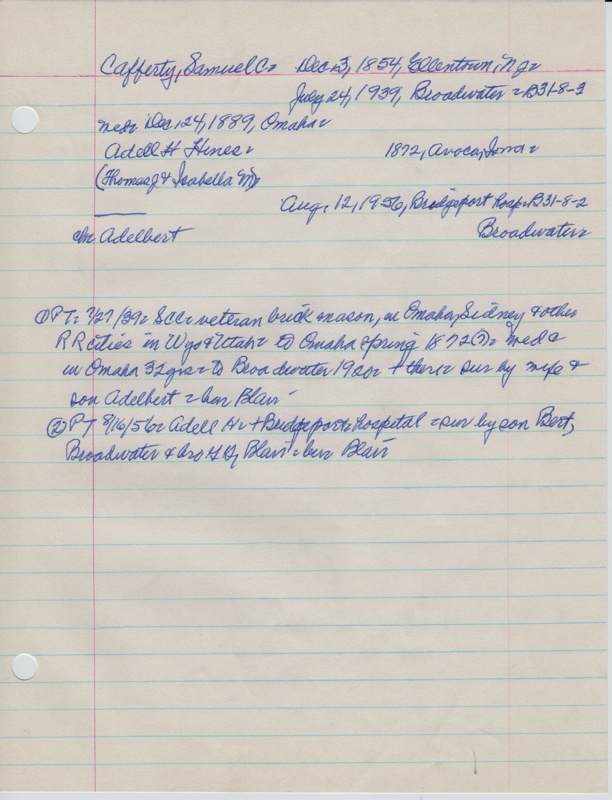 Cafferty, Samuel C= Dec 3, 1854, Ellentown, NJ=
July 24, 1939, Broadwater = B31-8-3
med= Dec. 24, 1889, Omaha=
Adell H Hines= 1872, Avoca, Iowa=
(Thomas J & Isabella M)
Aug. 12, 1956, Bridgeport Hosp= B31-8-2
ch. Adelbert Broadwater=
① PT= 7/27/39= SCC= veteran brick mason, in Omaha, Sidney & other
RR cities in Wyo & Utah= to Omaha spring 1872(?)= med C
in Omaha 32 yrs= to Broadwater 1920= + there= sur by wife &
son Adelbert = bur Blair
② PT 8/16/56= Adell H= + Bridgeport hospital = sur by son Bert,
Broadwater & bro H, Blair= bur Blair